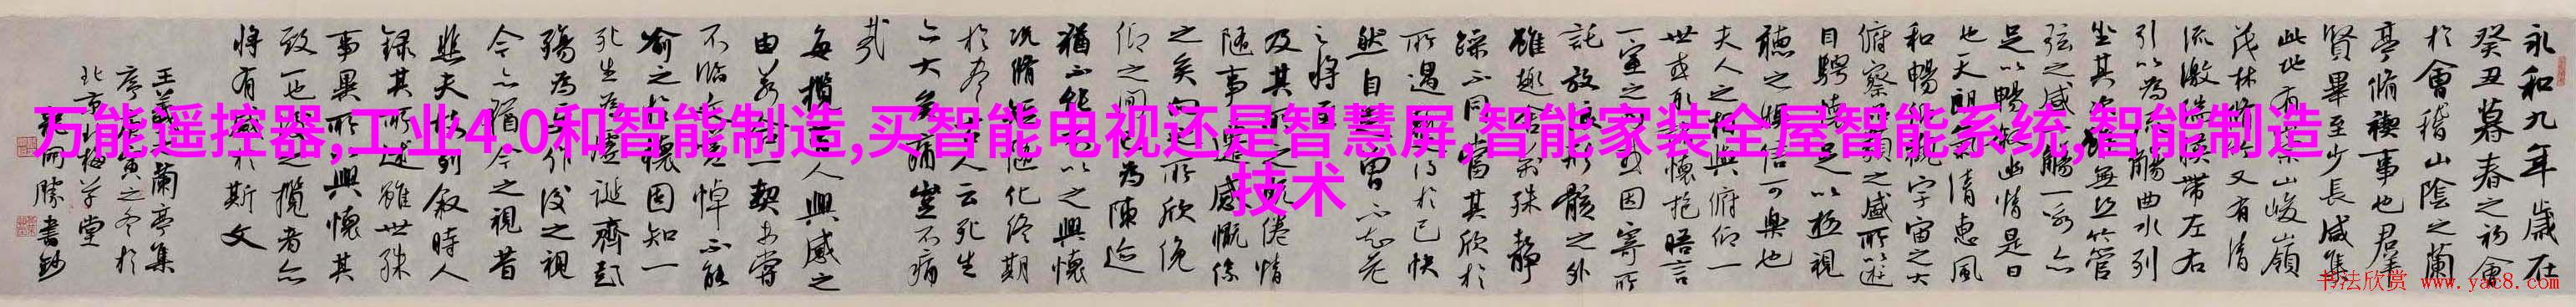 万能遥控器,工业4.0和智能制造,买智能电视还是智慧屏,智能家装全屋智能系统,智能制造
技术
永和九年歲在
癸丑暮春之初會
於會稽山陰之蘭
亭脩禊事也群
賢畢至少長咸集
此地有崇山峻嶺
茂林脩竹又有清
流激湍暎帶左右
引以為流觴曲水列
坐其次雖無絲竹管
弦之盛一觴一詠亦
足以暢敘幽情是日
也天朗氣清惠風
和暢仰觀宇宙之大
俯察品類之盛所以遊
目騁懷足以極視
聽之娛信可樂也
夫人之相與俯仰一
世或取諸懷抱晤言
一室之內或因寄所
託放浪形骸之外
雖趣舍萬殊靜
躁不同當其欣於
所遇暫得於己快
然自足曾不知老
之將至
及其所之既惓情
隨事遷感慨係
之矣向之所欣俛
仰之間已為陳迹
猶不能不以之興懷
況脩短隨化終期
於盡古人云死生
亦大矣豈不痛
哉
每攬昔人興感之
由若合一契未嘗
不臨文嗟悼不能
喻之於懷固知一
死生為虛誕齊彭
殤為妄作後之視
今亦猶今之視昔
悲夫故列敘時人
錄其所述雖世殊
事異所以興懷其
致一也後之攬者亦
將有感於斯文
王羲之蘭亭集
序庚寅之冬於
北京梅草堂
勝書鈔
书法欣赏 www.yac8.com